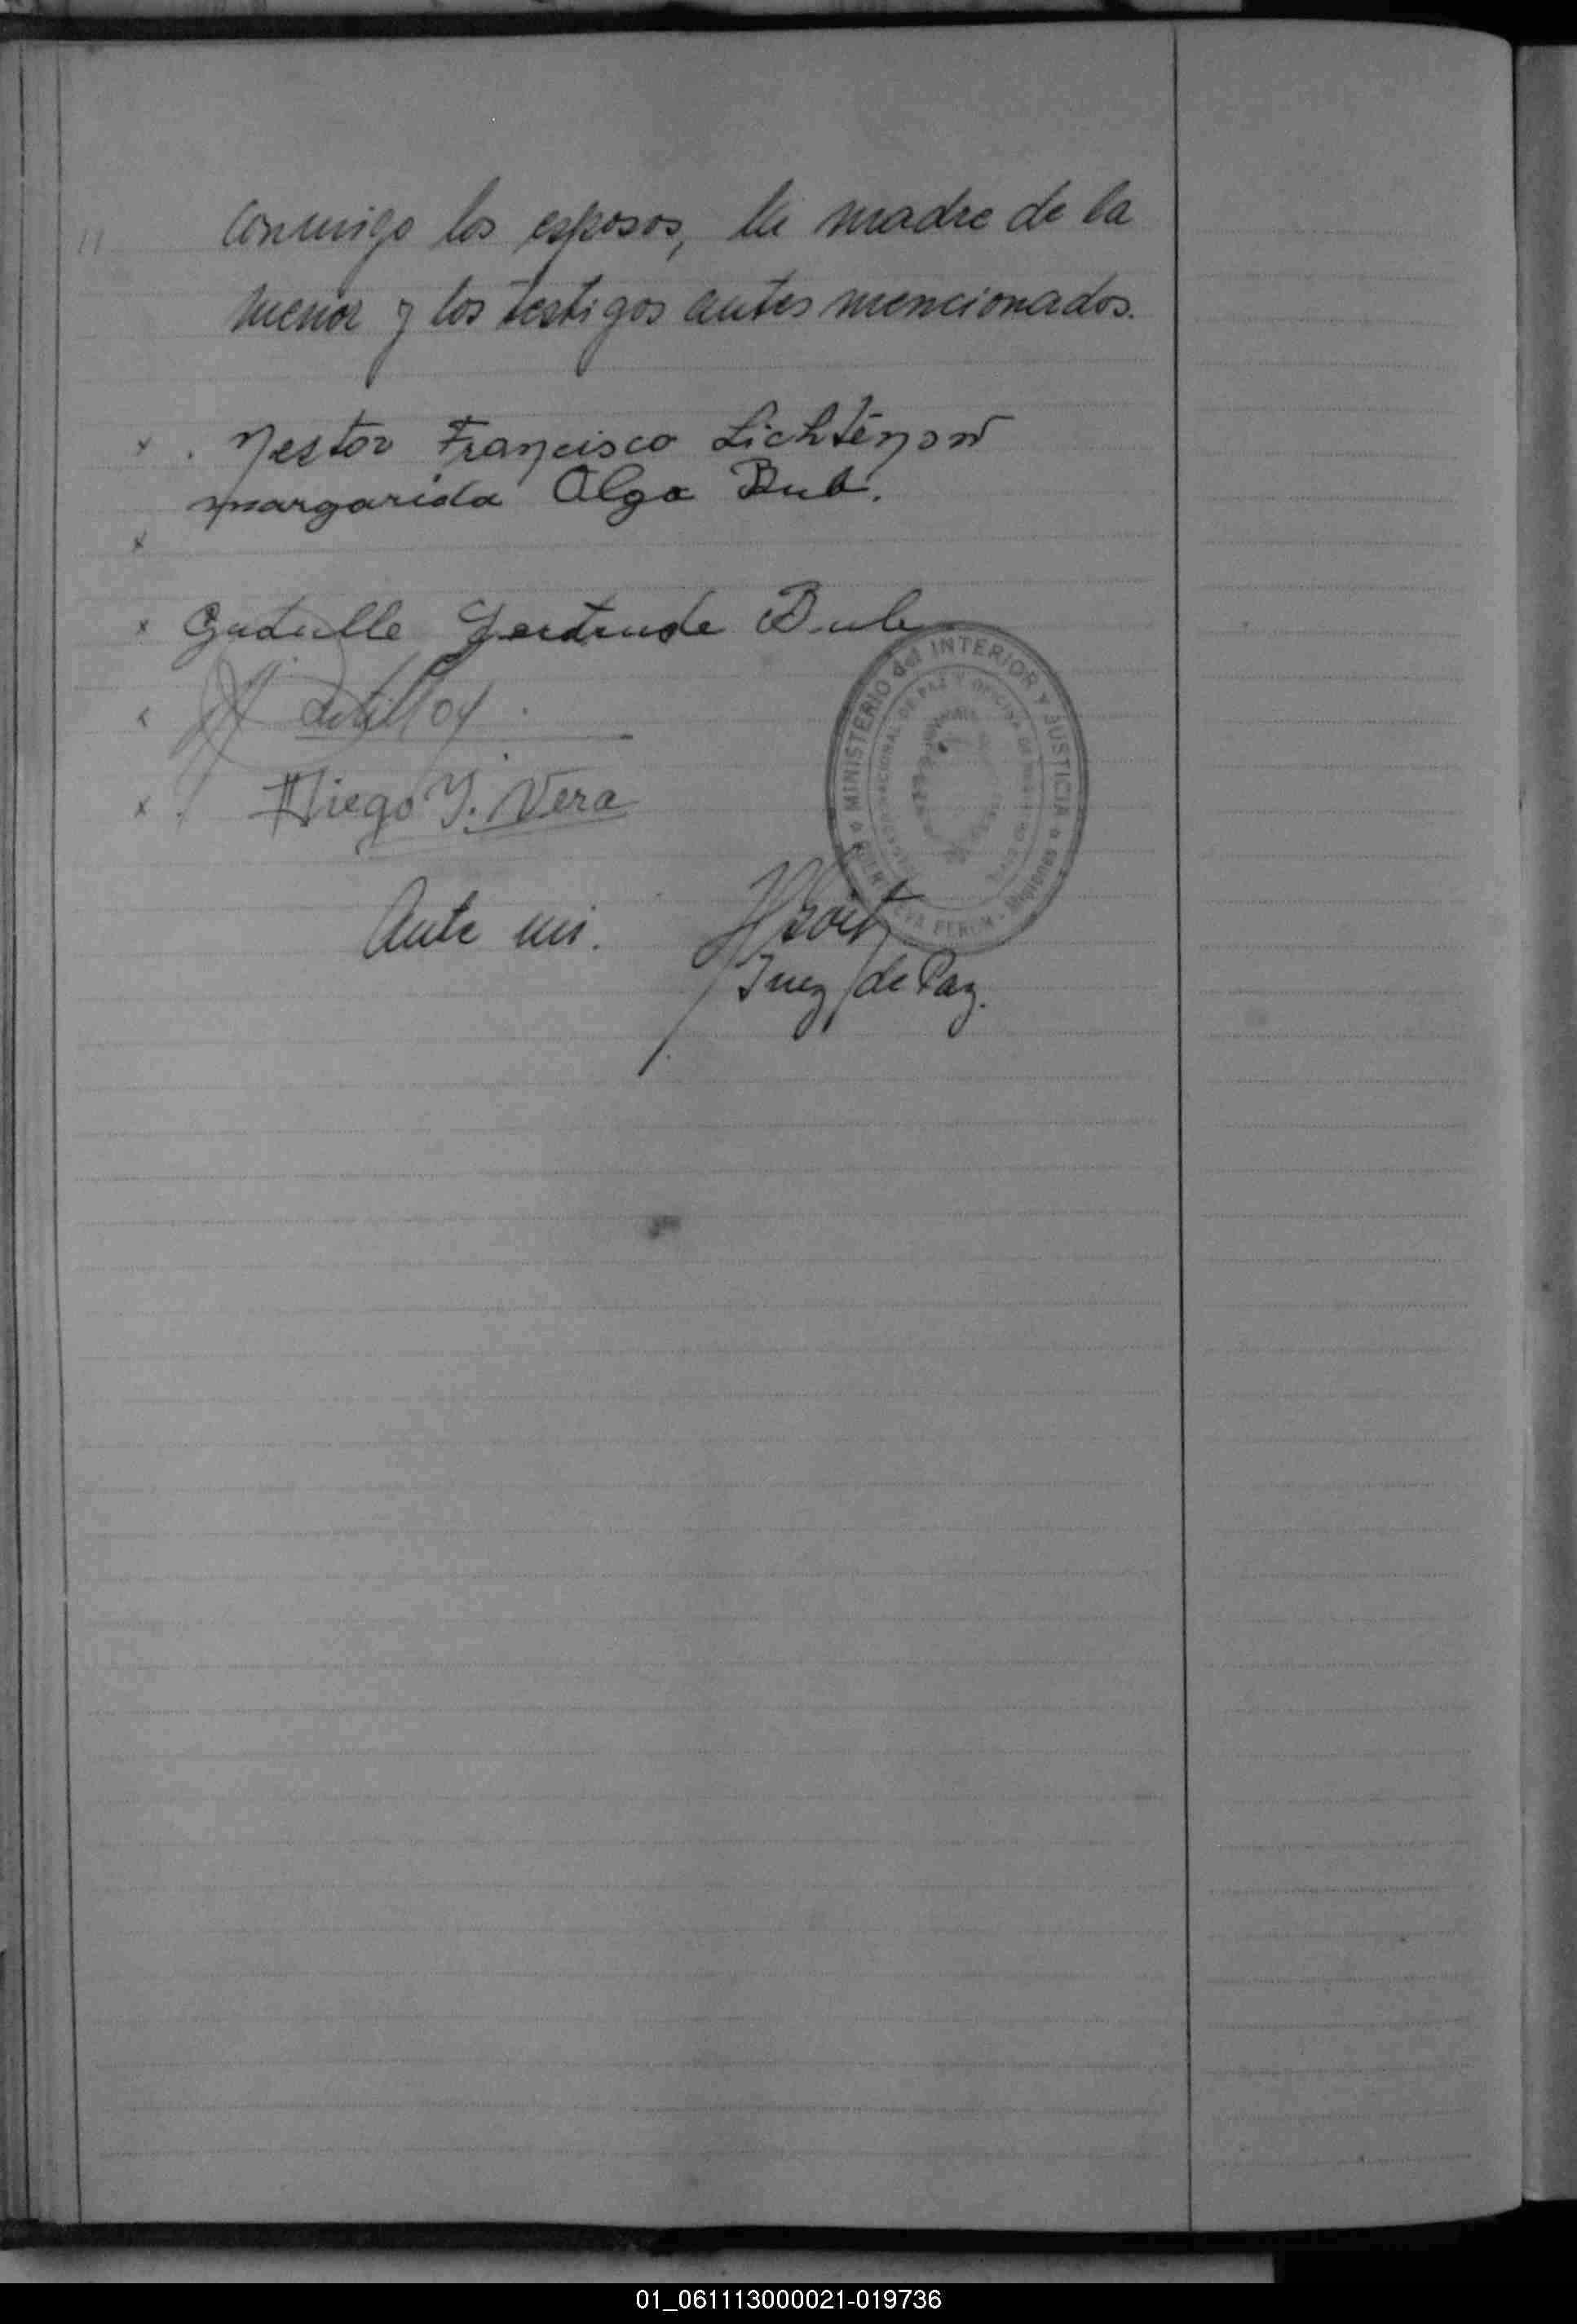 conmigo los esposos, la madre de la
menor y los testigos antes mencionados.
Nestor Francisco Lichtenow
margarida Olga Bub.
Gertrude Bub
Diego J. Vera
MINISTERIO del INTERIOR Y JUSTICIA
Misiones
Ante mi.
Juez de Paz.
01_061113000021-019736